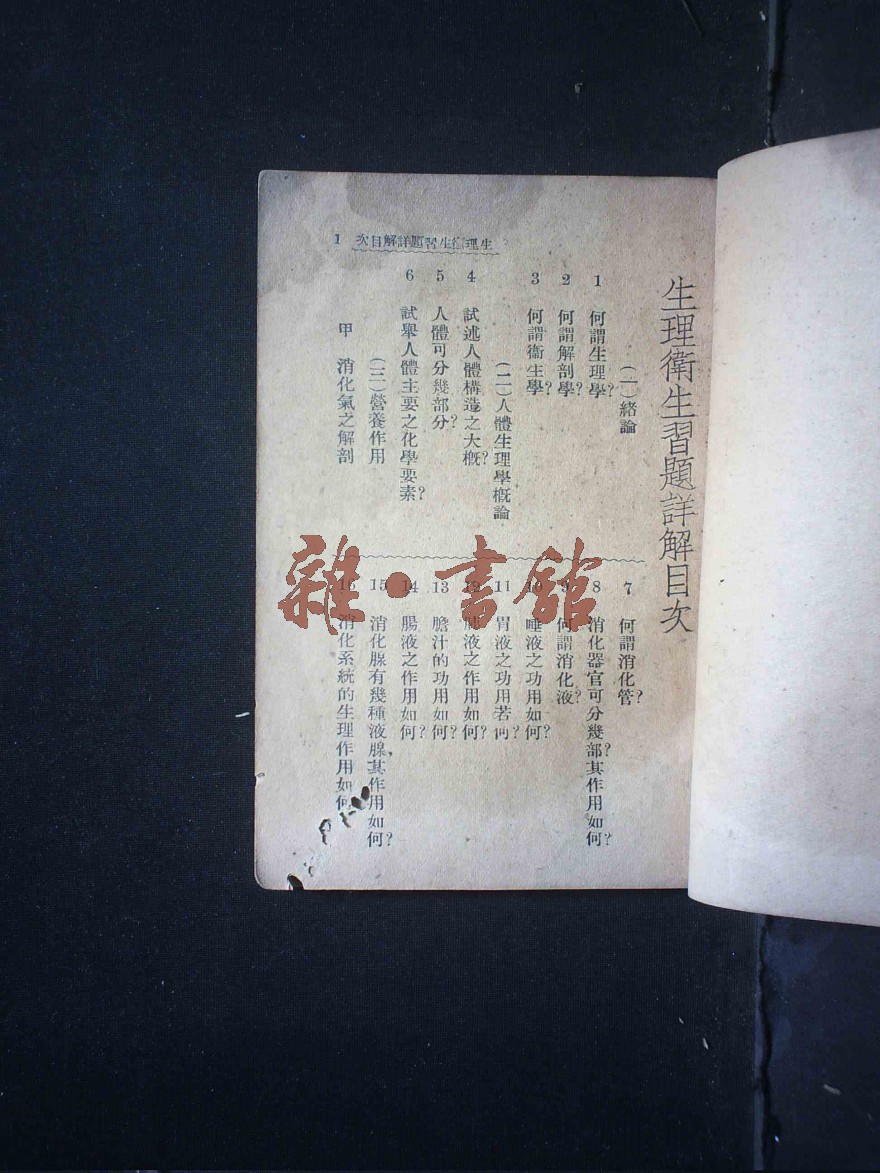 生理衛生習題詳解目次
(一)緒論
1 何謂生理學?
2 何謂解剖學?
3 何謂衞生學?
(二)人體生理學概論
4 試述人體構造之大概?
5 人體可分幾部分?
6 試舉人體主要之化學要素?
(三)營養作用
甲 消化氣之解剖
7 何謂消化管?
8 消化器官可分幾部?其作用如何?
9 何謂消化液?
10 唾液之功用如何?
11 胃液之功用若何?
12 液之作用如何?
13 膽汁的功用如何?
14 腸液之作用如何?
15 消化腺有幾種液腺,其作用如何?
16 消化系統的生理作用如何
生理衞生習題詳解目次 1
雜·書館